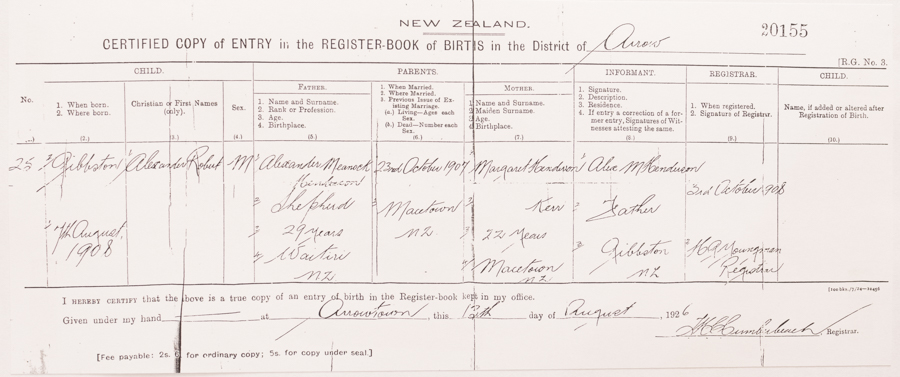 NEW ZEALAND.
20155
CERTIFIED COPY of ENTRY in the REGISTER-BOOK of BIRTHS in the District of Arrow
[R.G. No. 3.
CHILD.
PARENTS.
INFORMANT.
REGISTRAR.
CHILD.
No.
1. When born.
2. Where born.
Christian or First Names
(only).
Sex.
FATHER.
1. Name and Surname.
2. Rank or Profession.
3. Age.
4. Birthplace.
1. When Married.
2. Where Married.
3. Previous Issue of Ex-
isting Marriage.
(a.) Living—Ages each
Sex.
(b.) Dead—Number each
Sex.
MOTHER.
1. Name and Surname.
2. Maiden Surname.
3. Age.
4. Birthplace.
1. Signature.
2. Description.
3. Residence.
4. If entry a correction of a for-
mer entry, Signatures of Wit-
nesses attesting the same.
1. When registered.
2. Signature of Registrar.
Name, if added or altered after
Registration of Birth.
(2.)
(3.)
(4.)
(5.)
(6.)
(7.)
(8.)
(9.)
(10.)
25
Gibbston
7th August
1908
Alexander Robert
M
Alexander
Henderson
Shepherd
29 years
NZ
23rd October 1907
Macetown
NZ
Margaret Henderson
Kerr
22 Years
Macetown
NZ
Alex M Henderson
Father
Gibbston
NZ
3rd October 908
Registrar
I HEREBY CERTIFY that the above is a true copy of an entry of birth in the Register-book kept in my office.
Given under my hand, at Arrowtown, this 13th day of August, 1926
Registrar.
[Fee payable: 2s. 6 for ordinary copy; 5s. for copy under seal.]